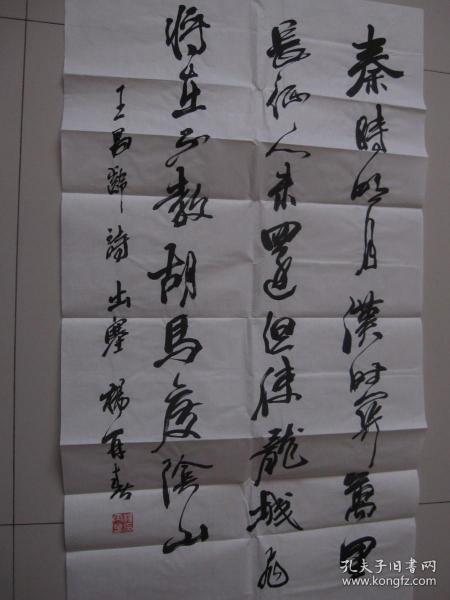 秦時明月漢時關萬里
長征人未還但使龍城飛
將在不教胡馬度陰山
王昌齡詩出塞楊再春
孔夫子旧书网
www.kongfz.com